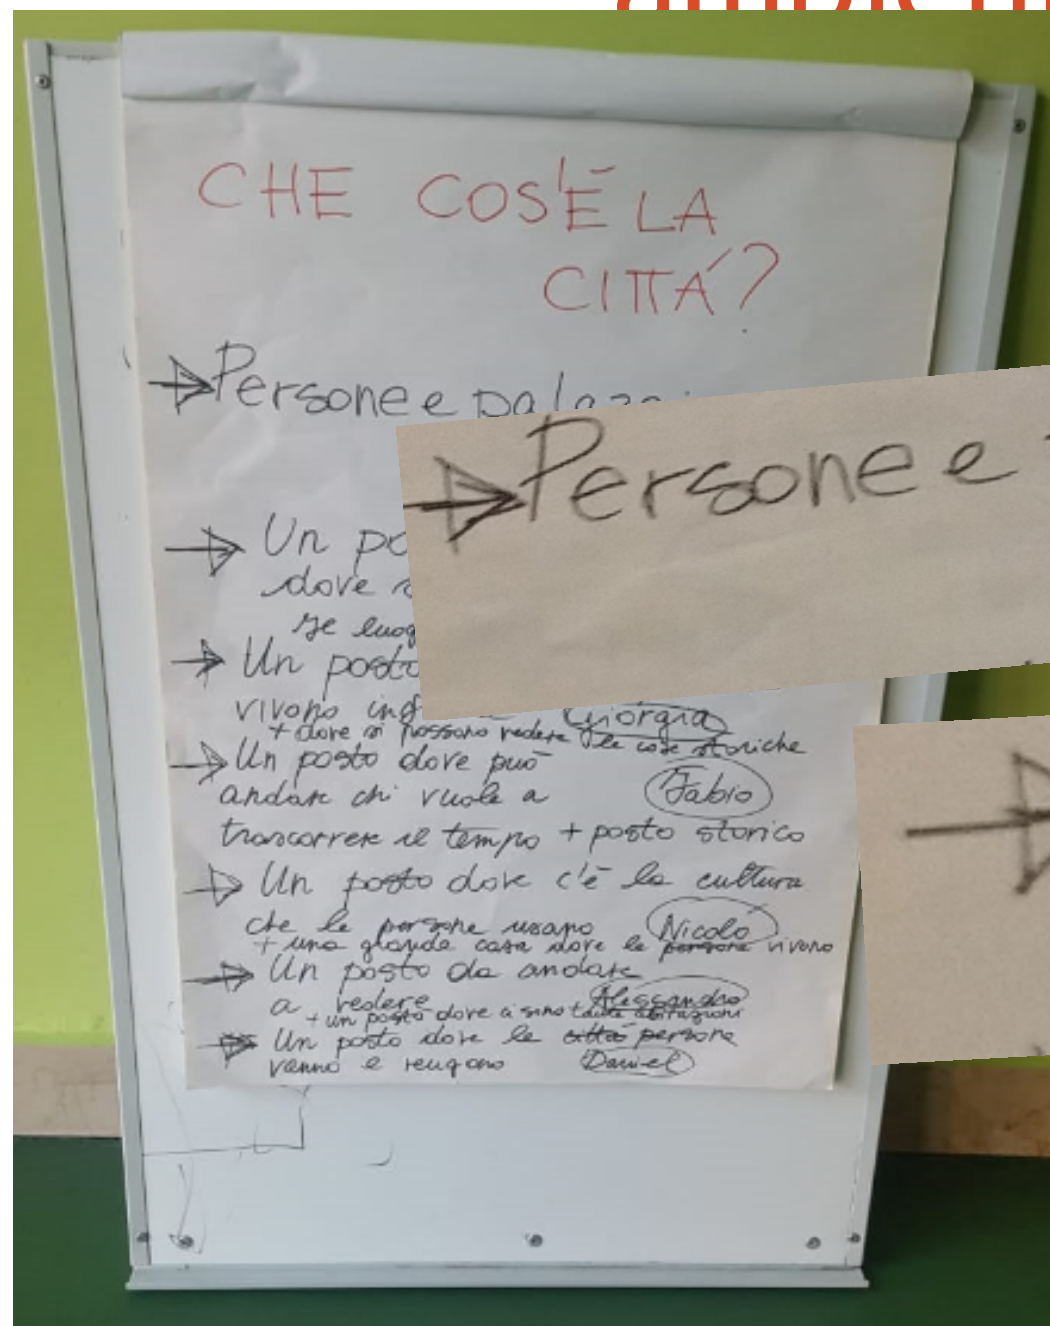 CHE COS'È LA
CITTÁ?
Persone e palazzi
Un po
dove
se luog
Un posto
vivono Giorgia
+ dove si possono vedere le cose storiche
Un posto dove può
andare chi vuole a Fabio
trascorrere il tempo + posto storico
Un posto dove c'è la cultura
che le persone usano Nicoló
+ una grande casa dove le persone vivono
Un posto da andare
a vedere Alessandro
+ un posto dove ci sono tante abitazioni
Un posto dove le città persone
vanno e vengono Daniel
Persone e